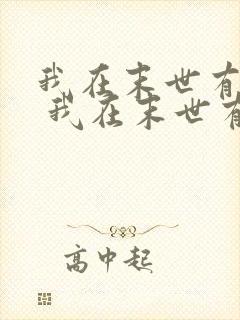 我在末世有
我在末世有
高中起